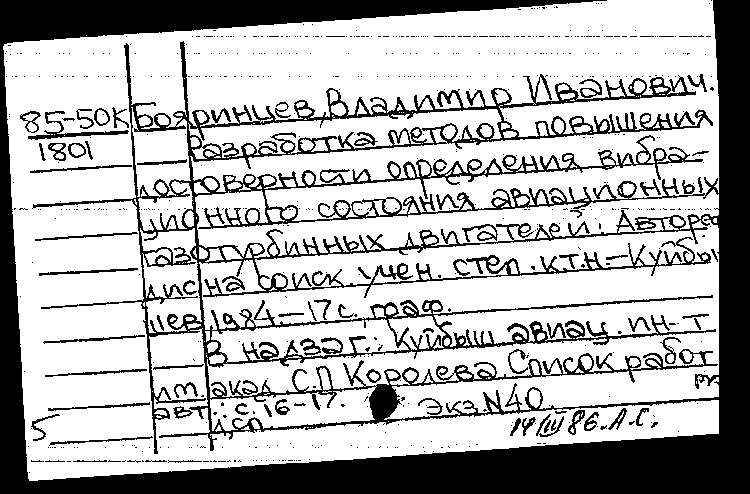 85-50К Бояринцев, Владимир Иванович.
1801 Разработка методов повышения
достоверности определения вибра-
ционного состояния авиационных
газотурбинных двигателей: Автореф
дис на соиск. учен. степ. к.т.н.- Куйбы
шев, 1984.-17 с., граф.
В надзаг.: Куйбыш авиац. ин-т
им. акад С.П Королева. Список работ
авт.: с. 16-17. Экз.N40.
5 ДСП. 14 III 86. А.С.